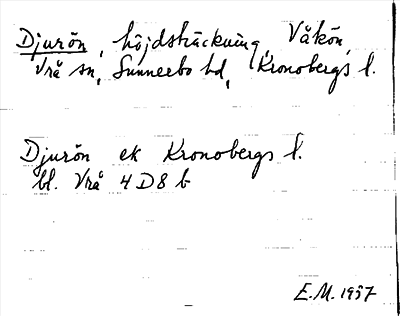 Djurön, höjdsträckning, Våkön,
Vrå sn, Sunnerbo hd, Kronobergs l.
Djurön ek Kronobergs l.
bl. Vrå 4 D 8 b
E.M. 1957